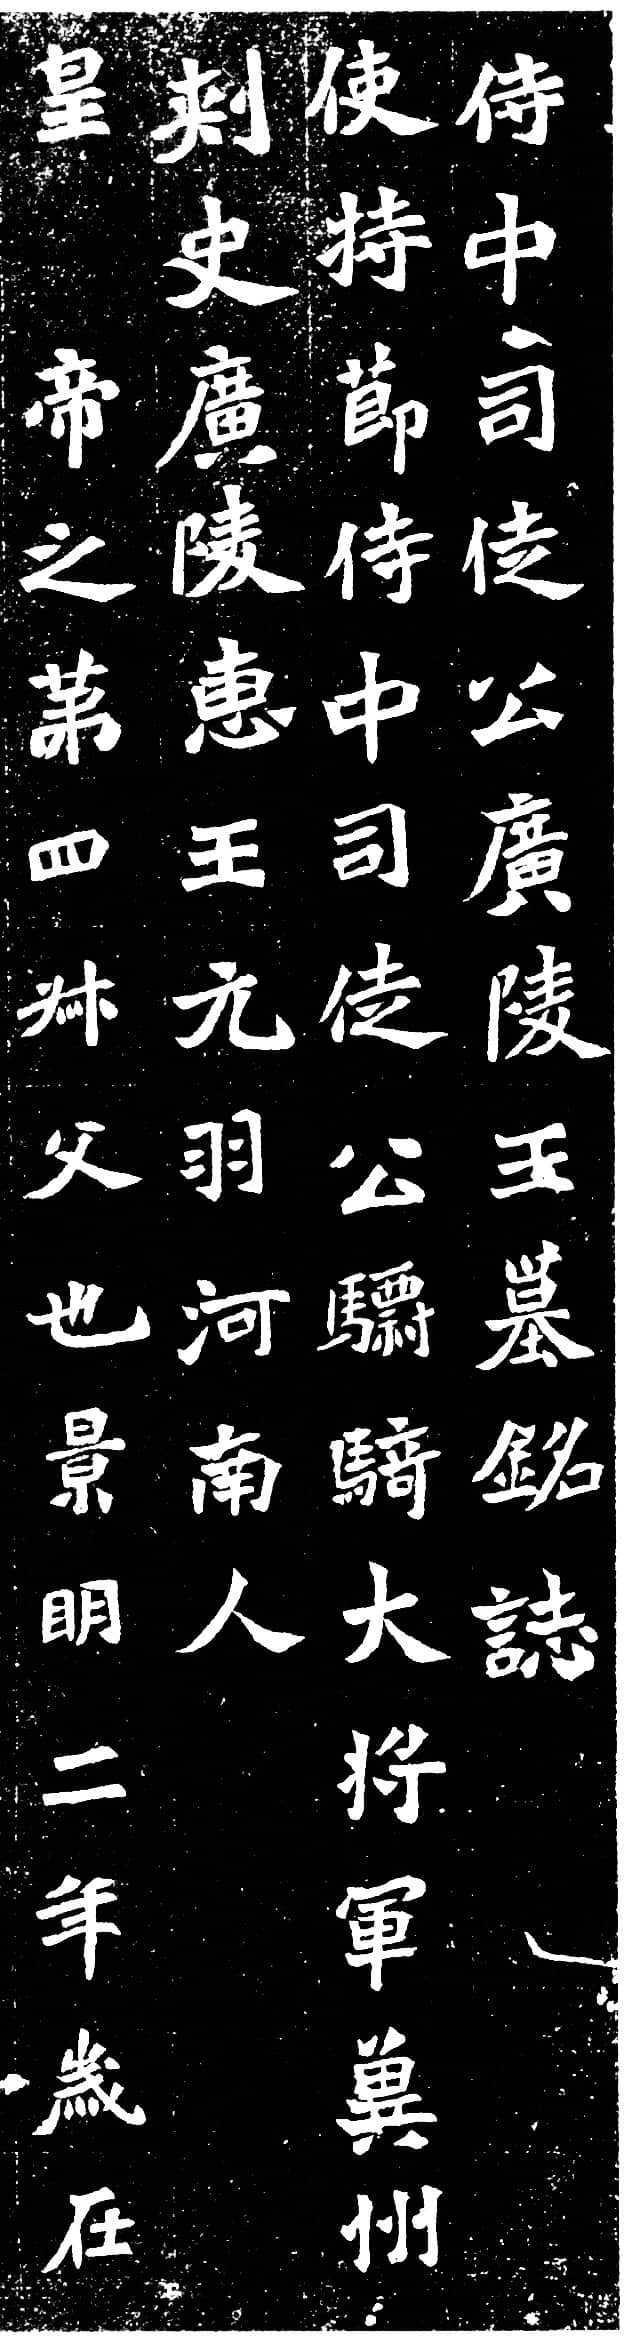 侍中司徒公廣陵王墓銘誌
使持節侍中司徒公驃騎大將軍冀州
刺史廣陵惠王元羽河南人
皇帝之第四叔父也景明二年歲在